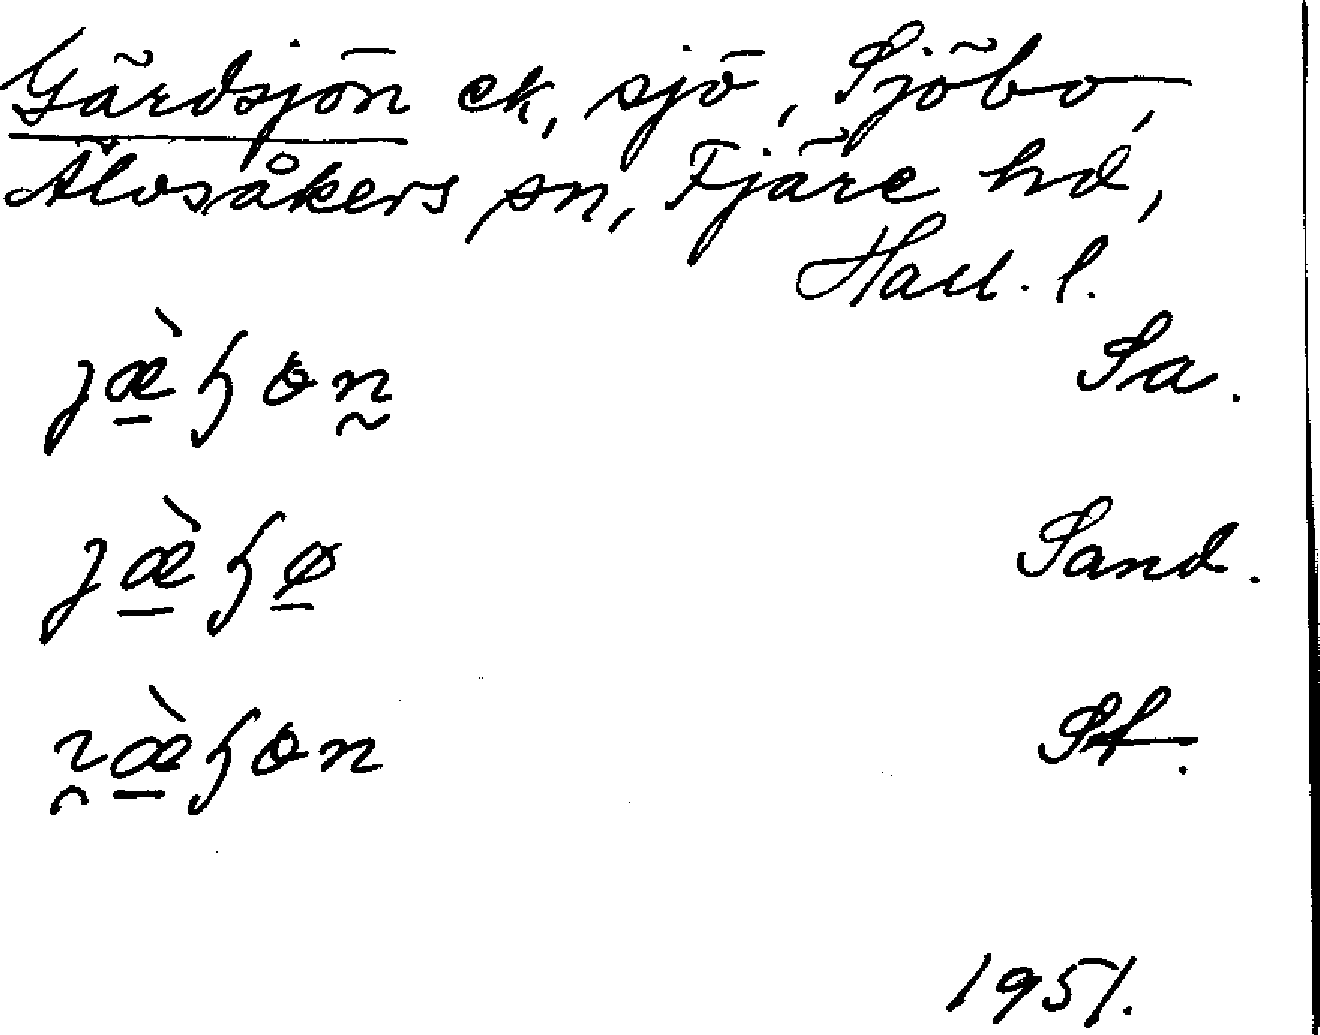 Gärdsjön ek, sjö, Sjöbo,
Älvsåkers sn, Fjäre hd,
Hall. l.
ȷæ̲̀ɧɵn̰ Sa.
ȷæ̲̀ɧø̲ Sand.
ɿ̯æ̲̀ɧɵn St.
1951.